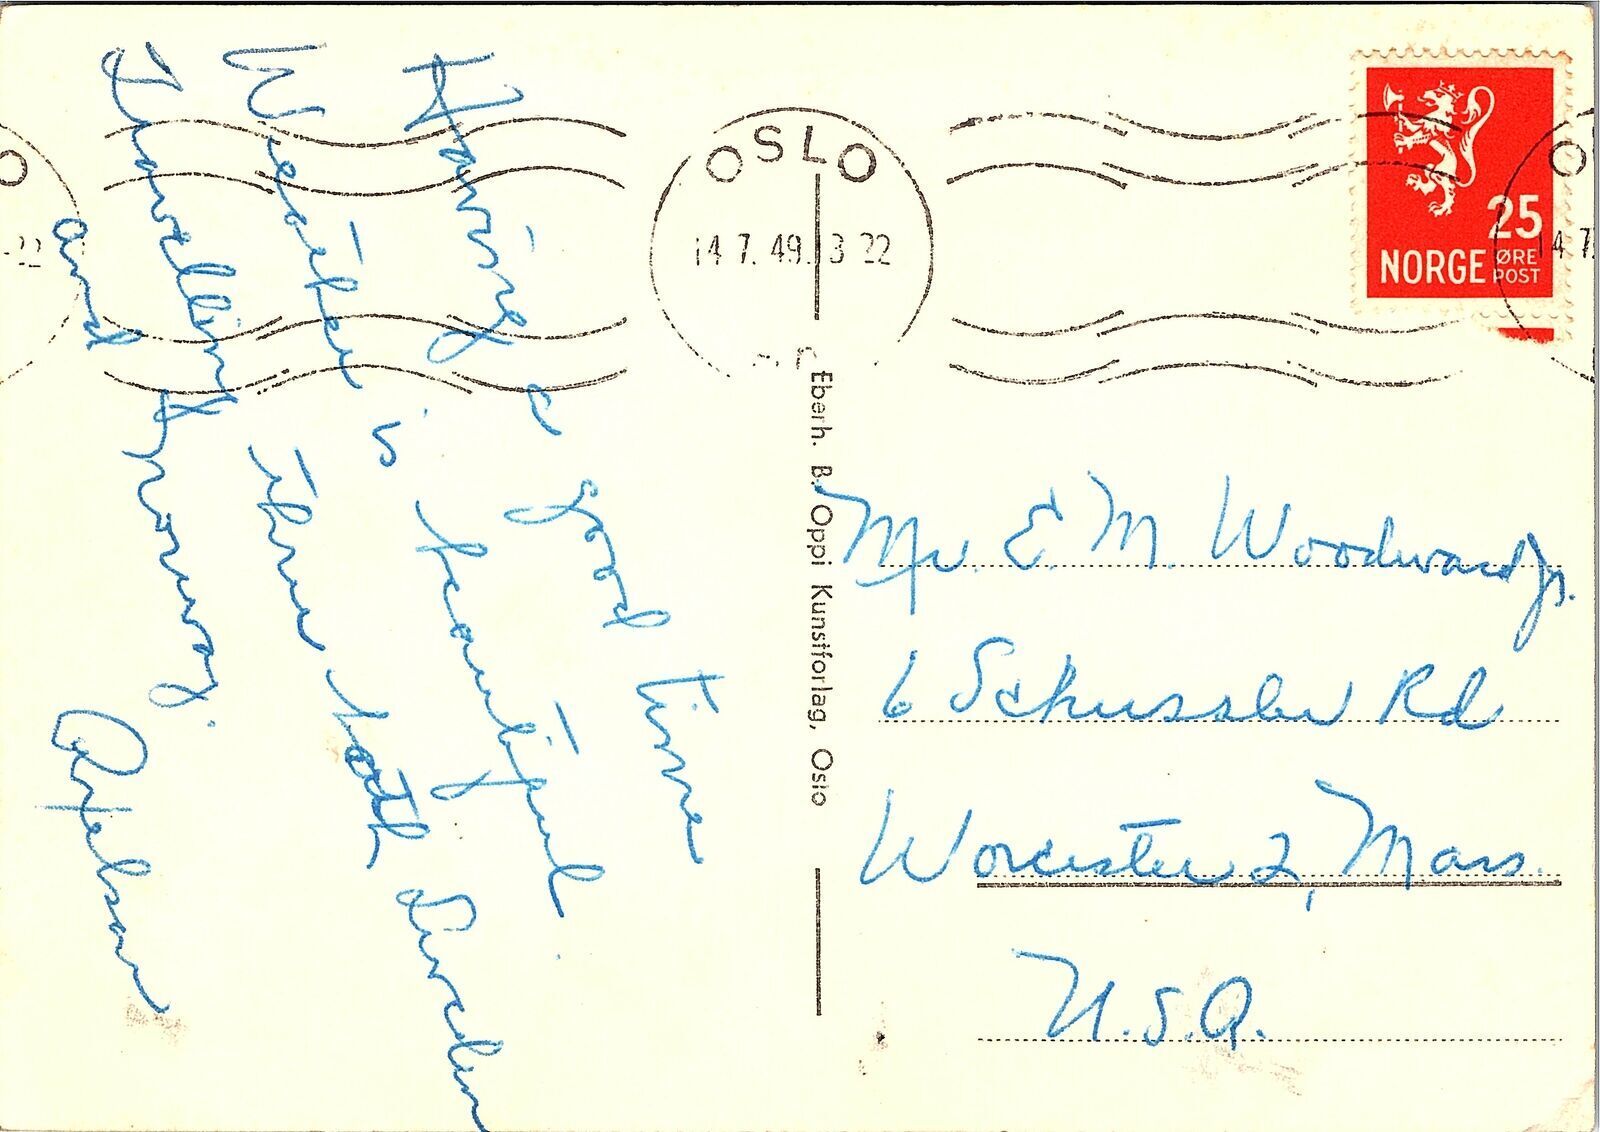 Having a good time
Weather is beautiful
Travelling thru both Sweden
and Norway.
OSLO
14.7.49.13 22
25
NORGE
ØRE
POST
Eberh. B. Oppi Kunstforlag, Oslo
Mr. E. M. Woodward Jr.
6 Schussler Rd
Worcester 2, Mass.
U.S.A.